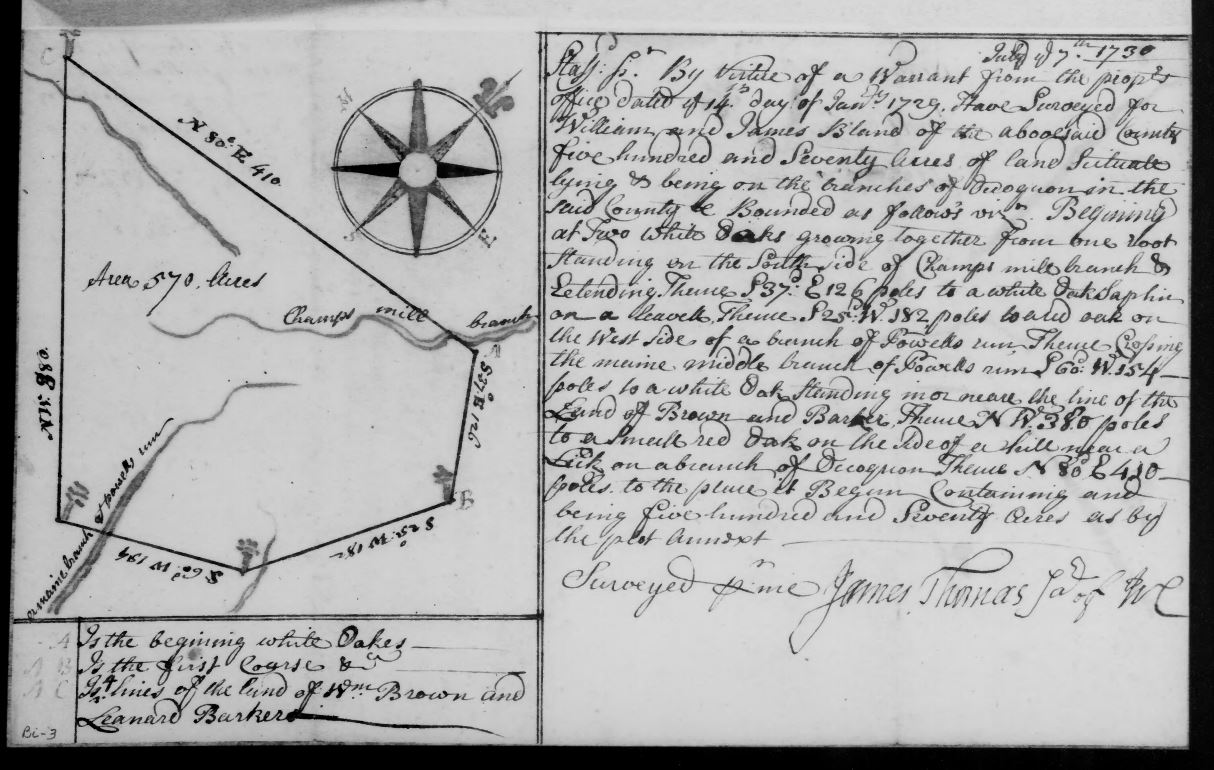 C
N 80.d E 410
N
S
E
Area 570. Acres
Champs mill branch
A
S 37d E 126
B
S 25d W 182
S 60d W 154
N W 380
maine branch of powells run
A Is the begining white Oakes
A B Is the first Coarse &c
A C Is lines of the land of Wm Brown and
Leanard Barkers
Bi-3
July ye 7th. 1730
Staff: Ss. By Virtue of a Warrant from the prop.rs
office dated ye 14.th day of Janry 1729. Have Surveyed for
William and James Bland of the abovesaid County
five hundred and Seventy Acres of land Scituate
lying & being on the branches of Occoquon in the
said County & Bounded as follows vizt. Begining
at Two White Oaks growing together from one root
Standing on the South Side of Champs mill branch &
Extending Thence S 37d. E 126 poles to a white Oak Saplin
on a leavell. Thence S 25d W. 182 poles to a red oak on
the West side of a branch of Powells run Thence Crossing
the maine middle branch of Powells run S 60d. W. 154
poles to a white Oak Standing in or neare the line of the
Land of Brown and Barker Thence N W. 380 poles
to a Small red Oak on the side of a hill near a
Lick on a branch of Occoquon Thence N 80d E 410
poles to the place it Begun Containing and
being five hundred and Seventy Acres as by
the plot Annext
Surveyed pr me James Thomas